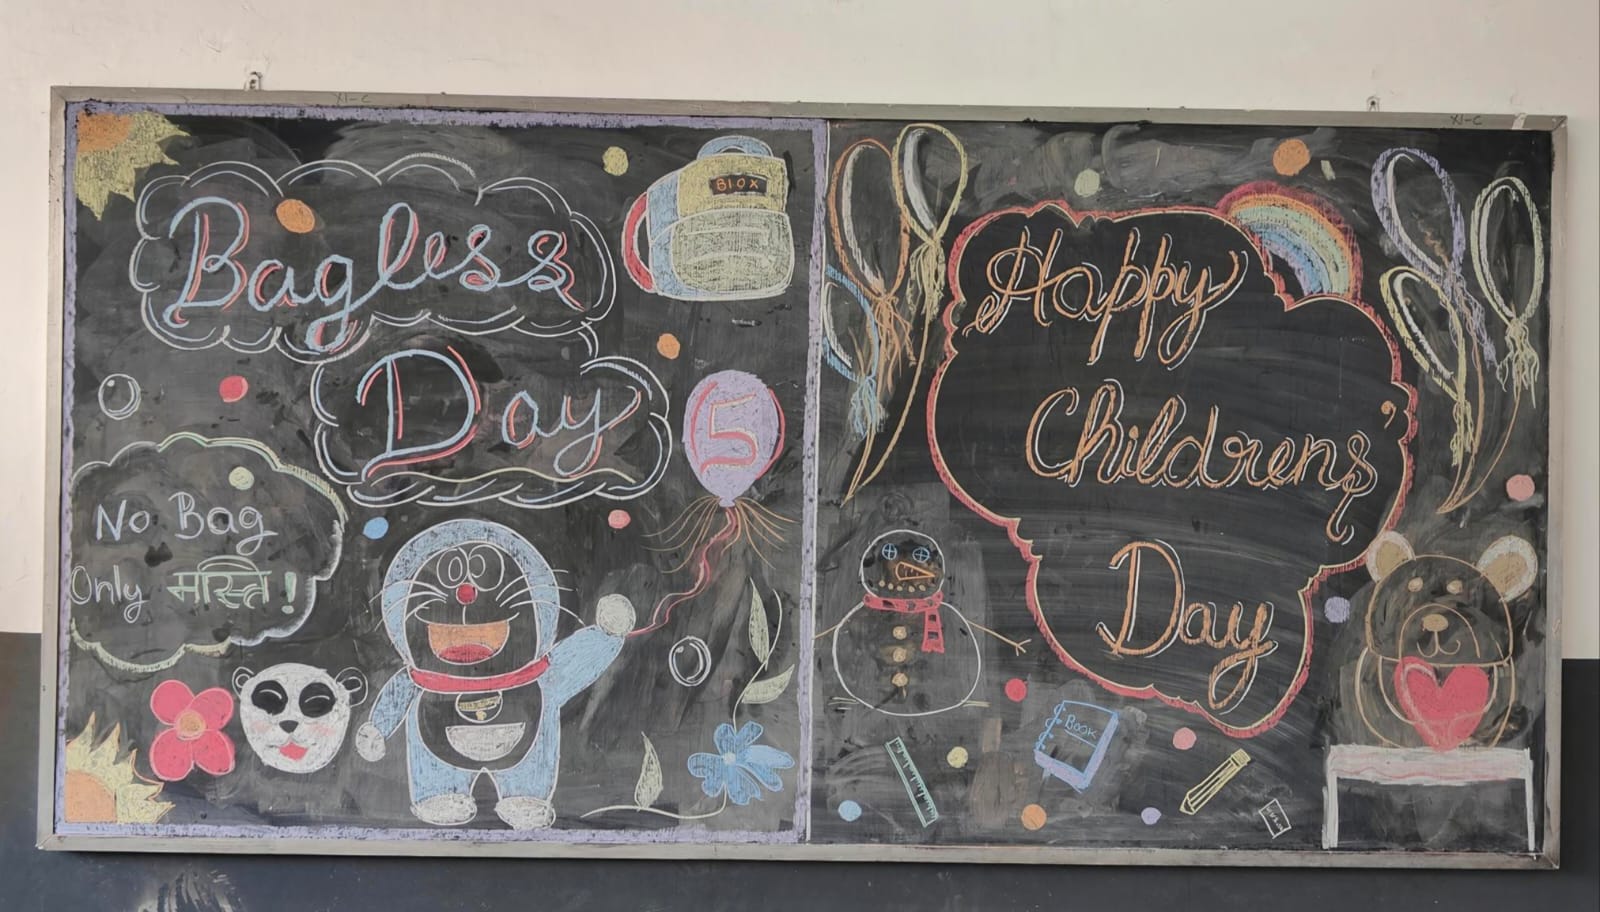 XI-C
XI-C
Bagless
Day
BIOX
5
No Bag
Only मस्ति !
Happy
Childrens'
Day
BOOK